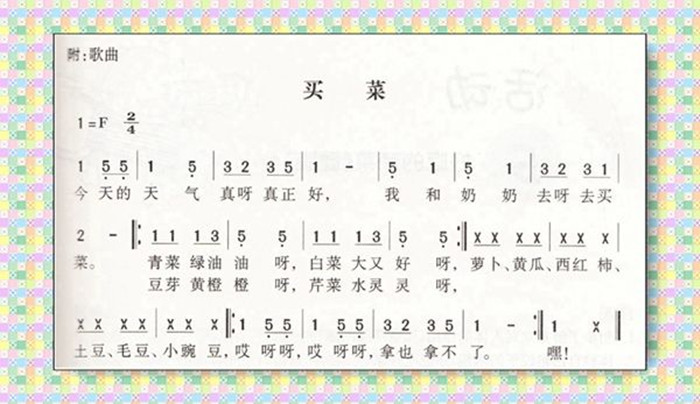 附：歌曲
买 菜
1=F 2/4
1 5 5 | 1 5 | 3 2 3 5 | 1 - | 5 1 | 5 1 | 3 2 3 1 |
今 天的 天 气 真呀 真正 好， 我 和 奶 奶 去呀 去买
2 - ‖: 1 1 1 3 | 5 5 | 1 1 1 3 | 5 5 :‖ x x x x | x x x x |
菜。 青菜 绿油 油 呀，白菜 大又 好 呀，萝卜、黄瓜、西红 柿、
豆芽 黄橙 橙 呀，芹菜 水灵 灵 呀，
x x x x | x x x :‖: 1 5 5 | 1 5 5 | 3 2 3 5 | 1 - :‖ 1 x ‖
土豆、毛豆、小豌 豆，哎 呀呀，哎 呀呀，拿也 拿不 了。 嘿！